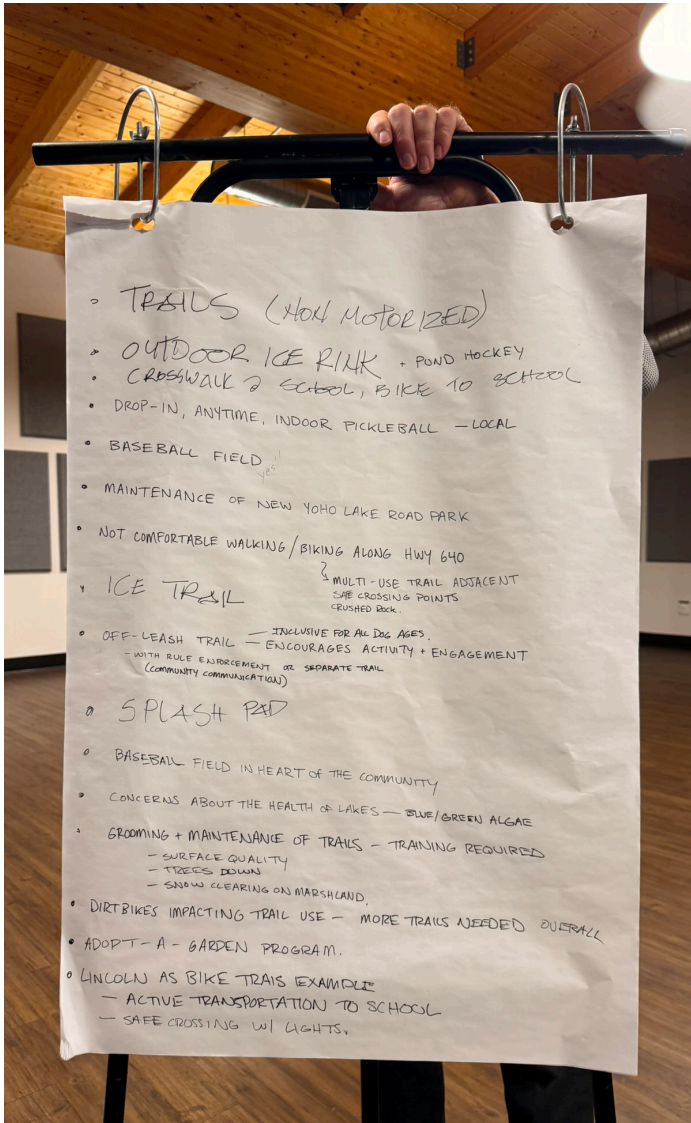 • TRAILS (NON MOTORIZED)
• OUTDOOR ICE RINK + POND HOCKEY
• CROSSWALK @ SCHOOL, BIKE TO SCHOOL
• DROP-IN, ANYTIME, INDOOR PICKLEBALL — LOCAL
• BASEBALL FIELD yes!
• MAINTENANCE OF NEW YOHO LAKE ROAD PARK
• NOT COMFORTABLE WALKING/BIKING ALONG HWY 640
MULTI-USE TRAIL ADJACENT
SAFE CROSSING POINTS
CRUSHED ROCK.
• ICE TRAIL
• OFF-LEASH TRAIL — INCLUSIVE FOR ALL DOG AGES.
— ENCOURAGES ACTIVITY + ENGAGEMENT
- WITH RULE ENFORCEMENT OR SEPARATE TRAIL
(COMMUNITY COMMUNICATION)
• SPLASH PAD
• BASEBALL FIELD IN HEART OF THE COMMUNITY
• CONCERNS ABOUT THE HEALTH OF LAKES — BLUE/GREEN ALGAE
• GROOMING + MAINTENANCE OF TRAILS — TRAINING REQUIRED
— SURFACE QUALITY
— TREES DOWN
— SNOW CLEARING ON MARSHLAND.
• DIRTBIKES IMPACTING TRAIL USE — MORE TRAILS NEEDED OVERALL
• ADOPT-A-GARDEN PROGRAM.
• LINCOLN AS BIKE TRAIS EXAMPLE
— ACTIVE TRANSPORTATION TO SCHOOL
— SAFE CROSSING W/ LIGHTS.